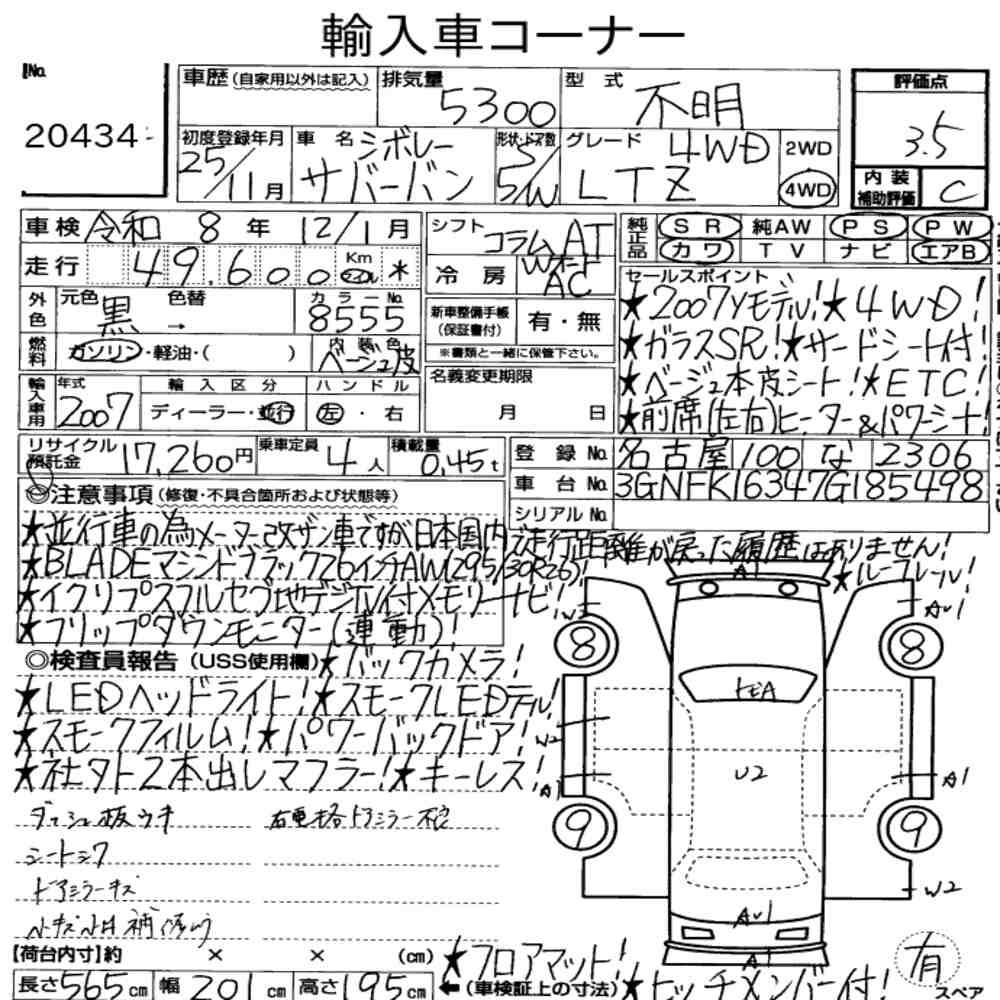 輸入車コーナー
No.
20434
車歴(自家用以外は記入)
排気量
5300
型式
不明
評価点
3.5
内装補助評価
C
初度登録年月
25/11月
車名
シボレー
サバーバン
形状・ドア数
5
5/W
グレード
4WD
LTZ
2WD
4WD
車検 令和 8 年 12/1月
走行 49,600 Km マイル *
シフト コラムAT
冷房 WオートAC
純正品 SR 純AW PS PW
カワ TV ナビ エアB
外色 元色 黒 色替 → カラーNo. 8555
燃料 ガソリン・軽油・( ) 内装色 ベージュ皮
新車整備手帳(保証書付) 有・無
※書類と一緒に保管下さい。
セールスポイント
★2007Yモデル!★4WD!
★ガラスSR!★サードシート付!
★ベージュ本皮シート!★ETC!
★前席(左右)ヒーター&パワーシート!
輸入車用 年式 2007 輸入区分 ディーラー・並行 ハンドル 左・右
名義変更期限
月 日
リサイクル預託金 17,260円 乗車定員 4人 積載量 0.45t
登録No. 名古屋 100 な 2306
車台No. 3GNFK16347G185498
シリアルNo.
注意事項(修復・不具合箇所および状態等)
★並行車の為メーター改ザン車ですが日本国内で走行距離が戻った履歴はありません!
★BLADEマシンドブラック26インチAW(295/30R26)!
★ルーフレール!
★イクリプスフルセグ地デジTV付メモリーナビ!
★フリップダウンモニター(連動)!
◎検査員報告(USS使用欄)★バックカメラ!
★LEDヘッドライト!★スモークLEDテール!
★スモークフィルム!★パワーバックドア!
★社外2本出しマフラー!★キーレス!
ダッシュ板ウキ
シートシワ
ドアミラーキズ
小キズ小凹補修アリ
A1
AU1
W2
8
8
U2
A1
W2
A1
9
9
W2
AU1
A1
【荷台内寸】約 × × (cm)
長さ565cm 幅201cm 高さ195cm
←(車検証上の寸法)
★フロアマット!
★ヒッチメンバー付!
有
スペア